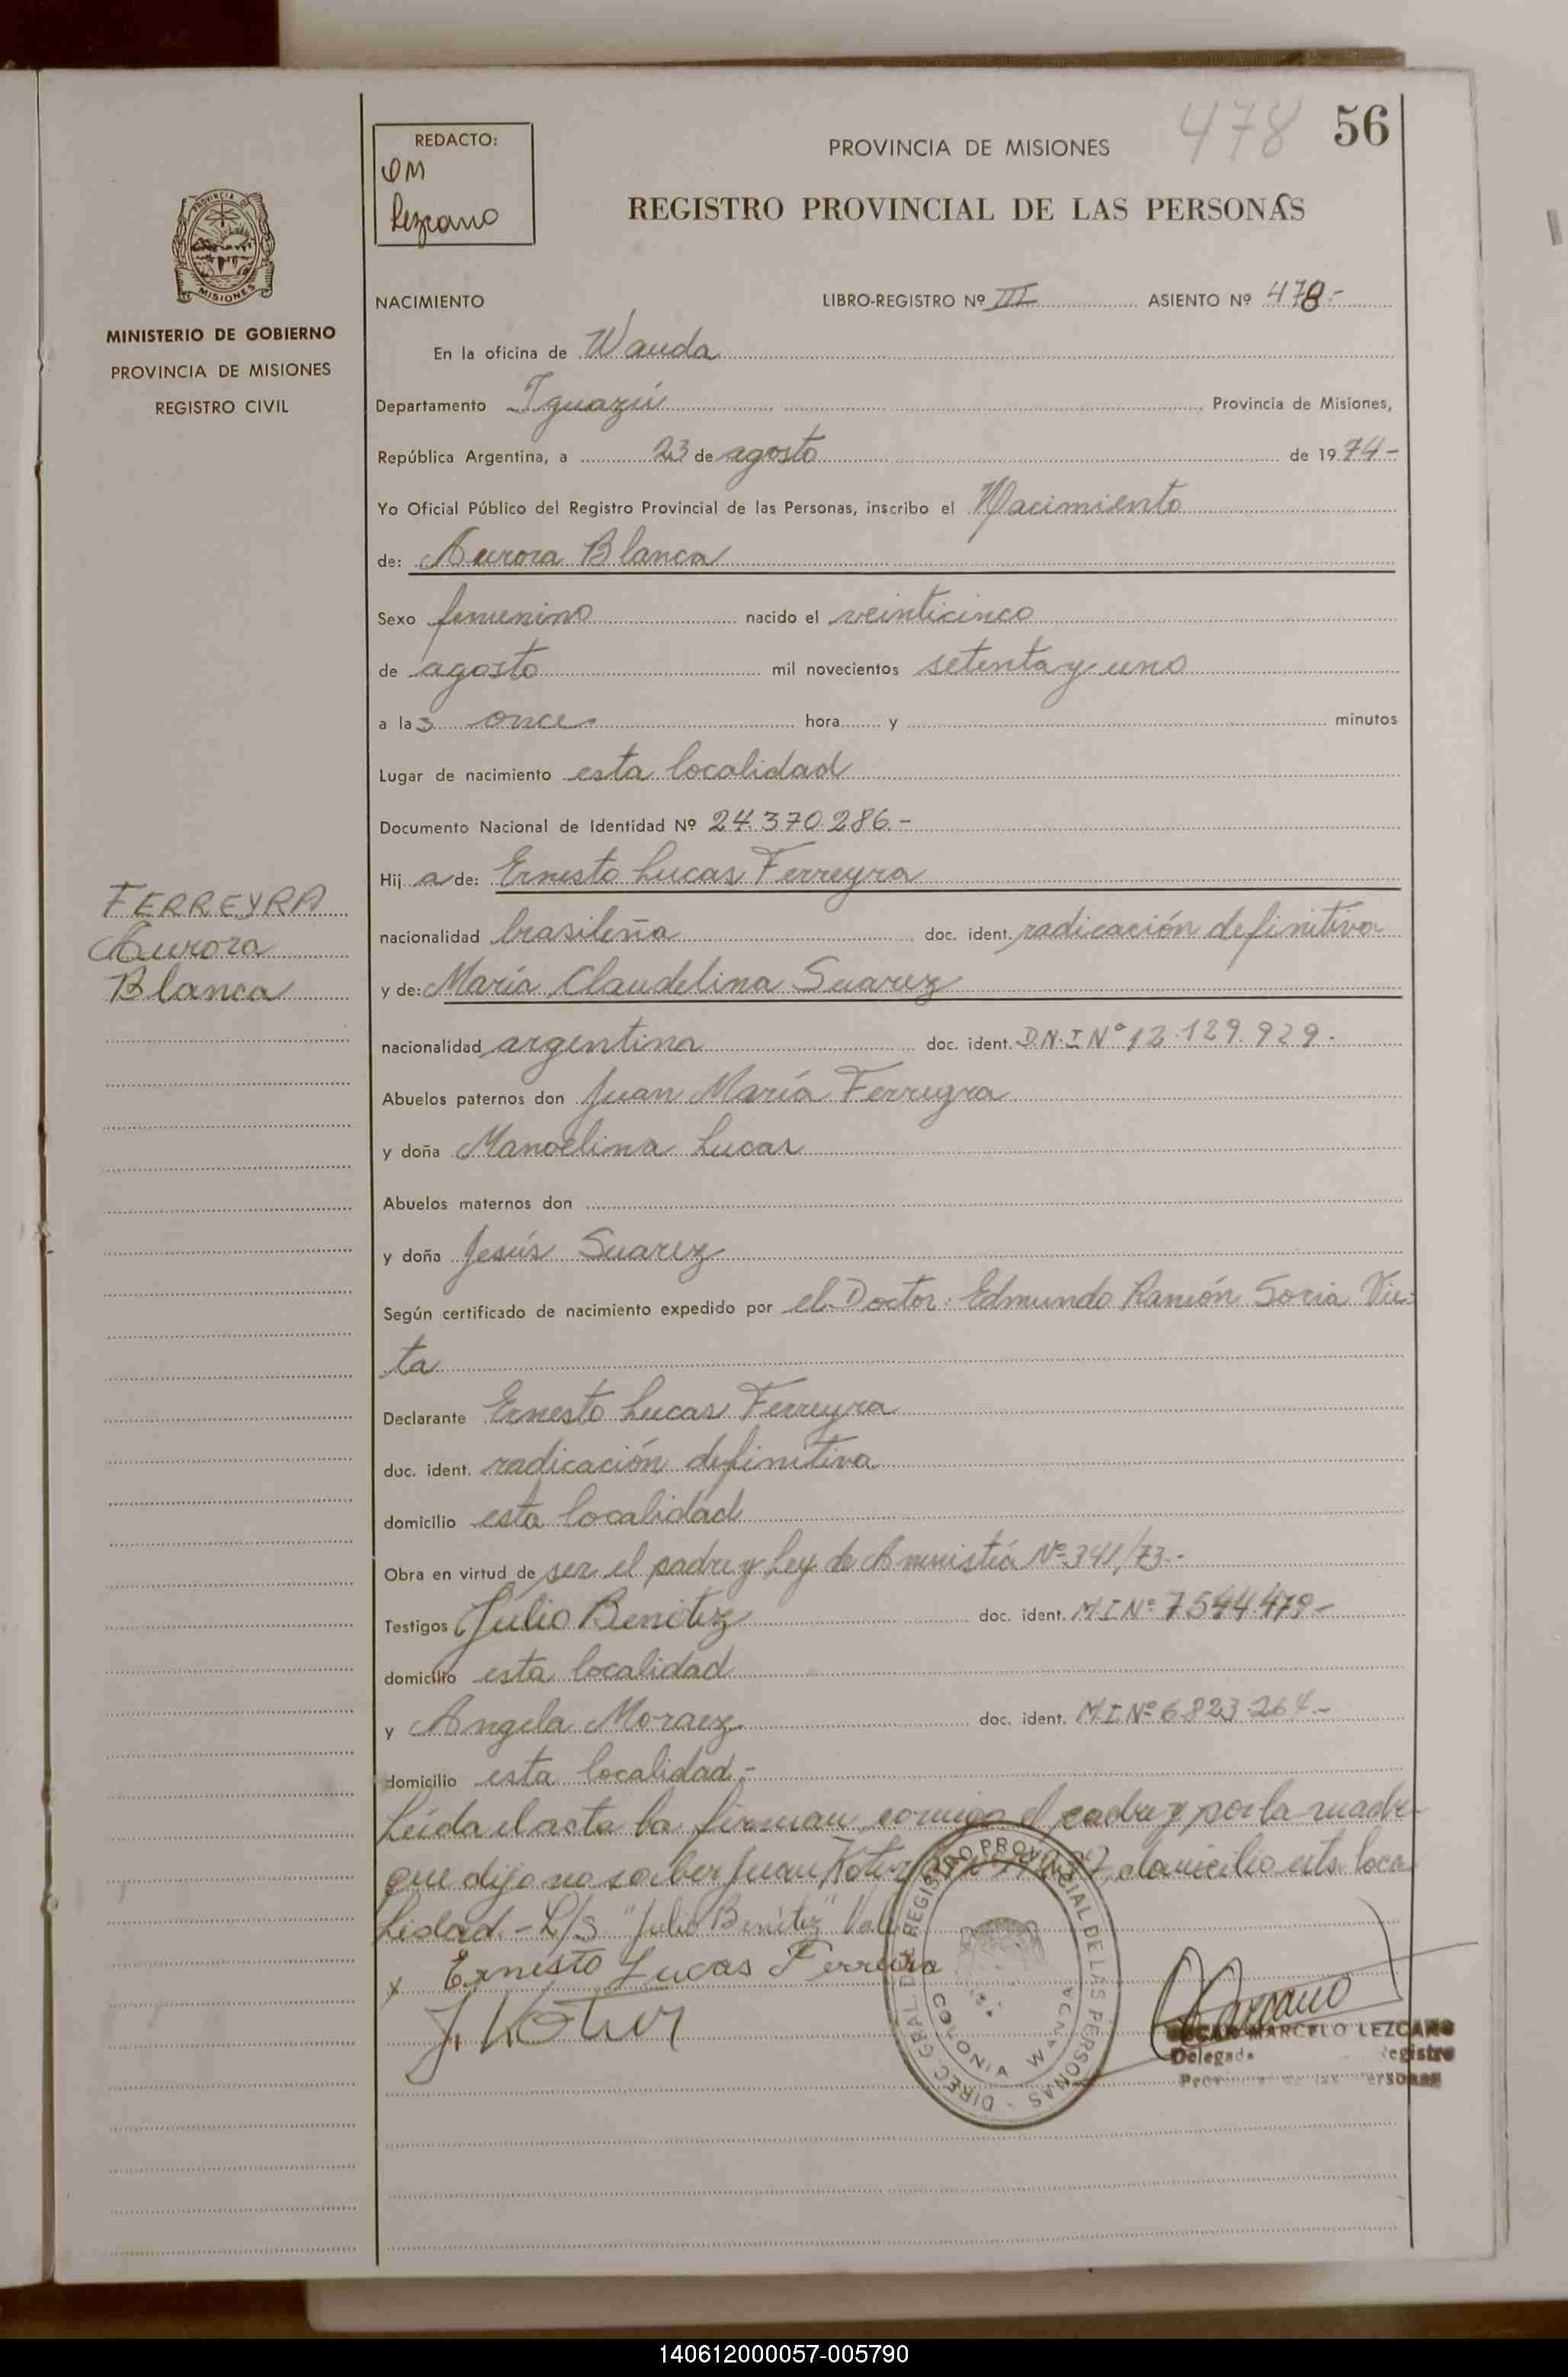 478 56
REDACTO:
OM
Lezcano
PROVINCIA DE MISIONES
REGISTRO PROVINCIAL DE LAS PERSONAS
PROVINCIA DE
MISIONES
MINISTERIO DE GOBIERNO
PROVINCIA DE MISIONES
REGISTRO CIVIL
NACIMIENTO LIBRO-REGISTRO Nº III ASIENTO Nº 478.-
En la oficina de Wanda
Departamento Iguazú Provincia de Misiones,
República Argentina, a 23 de agosto de 1974-
Yo Oficial Público del Registro Provincial de las Personas, inscribo el Nacimiento
de: Aurora Blanca
Sexo femenino nacido el veinticinco
de agosto mil novecientos setenta y uno
a las once hora y minutos
Lugar de nacimiento esta localidad
Documento Nacional de Identidad Nº 24.370.286.-
Hij a de: Ernesto Lucas Ferreyra
FERREYRA
Aurora
Blanca
nacionalidad brasileña doc. ident. radicación definitiva
y de: María Claudelina Suarez
nacionalidad argentina doc. ident. D.N.I Nº 12.129.929.
Abuelos paternos don Juan María Ferreyra
y doña Manoelina Lucas
Abuelos maternos don
y doña Jesús Suarez
Según certificado de nacimiento expedido por el Doctor Edmundo Ramón Soria Vie-
ta
Declarante Ernesto Lucas Ferreyra
doc. ident. radicación definitiva
domicilio esta localidad
Obra en virtud de ser el padre y Ley de Amnistía Nº 341/73.-
Testigos Julio Benitez doc. ident. M.I.Nº 7.544.479-
domicilio esta localidad
y Angela Moraez doc. ident. M.I.Nº 6.823.264.-
domicilio esta localidad.-
Leída el acta la firman conmigo el padre y por la madre
que dijo no saber Juan Kotur domicilio esta loca-
lidad.- L/S "Julio Benítez" Vale
x Ernesto Lucas Ferreira
J. Kotur
DIREC. GRAL. DE REGISTRO PROVINCIAL DE LAS PERSONAS -
COLONIA WANDA
Lezcano
OSCAR MARCELO LEZCANO
Delegado Registro
Provincial de las Personas
140612000057-005790